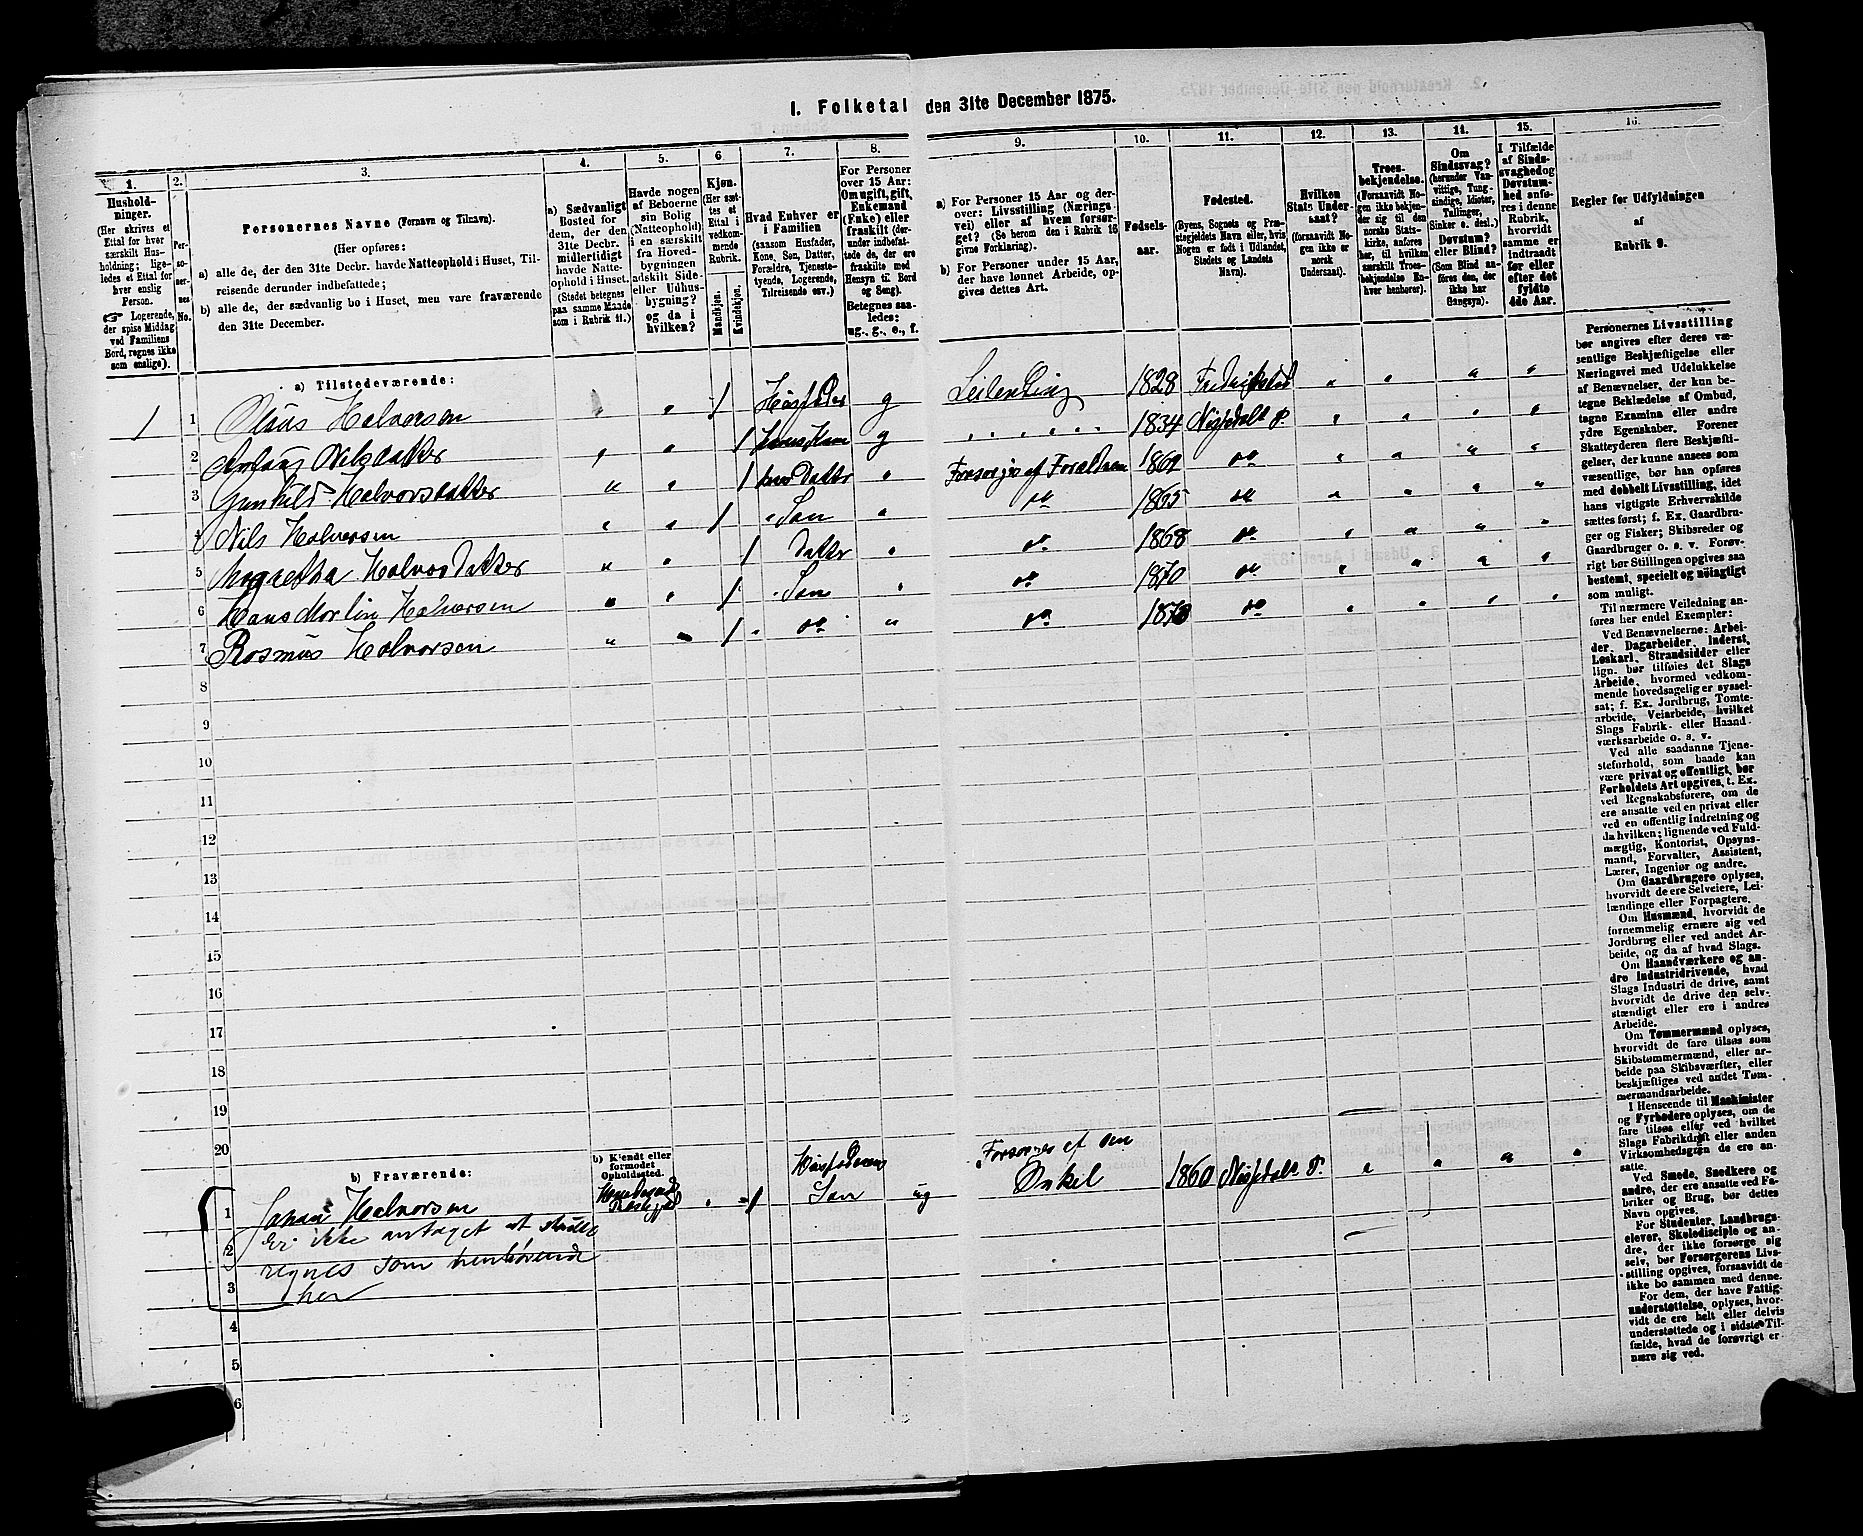 I. Folketal den 31te December 1875.
1.
Hushold-
ninger.
(Her skrives et
Ettal for hver
særskilt Hus-
holdning; lige-
ledes et Ettal for
hver enslig
Person.
☞ Logerende,
der spise Middag
ved Familiens
Bord, regnes ikke
som enslige).
2.
Per-
so-
ner-
nes
No.
3.
Personernes Navne (Fornavn og Tilnavn).
(Her opføres:
a) alle de, der den 31te Decbr. havde Natteophold i Huset, Til-
reisende derunder indbefattede;
b) alle de, der sædvanlig bo i Huset, men vare fraværende
den 31te December.
4.
a) Sædvanligt
Bosted for
dem, der den
31te Decbr.
midlertidigt
havde Natte-
ophold i Huset.
(Stedet betegnes
paa samme Maade
som i Rubrik 11.)
5.
Havde nogen
af Beboerne
sin Bolig
(Natteophold)
i en særskilt
fra Hoved-
bygningen
adskilt Side-
eller Udhus-
bygning?
og da i
hvilken?
6.
Kjøn.
(Her sæt-
tes et
Ettal i
vedkom-
mende
Rubrik.
Mandkjøn.
Kvindekjøn.
7.
Hvad Enhver er
i Familien
(saasom Husfader,
Kone, Søn, Datter,
Forældre, Tjeneste-
tyende, Logerende,
Tilreisende osv.)
8.
For Personer
over 15 Aar:
Om ugift, gift,
Enkemand
(Enke) eller
fraskilt (der-
under indbefat-
tede de, der ere
fraskilte med
Hensyn til Bord
og Seng).
Betegnes saa-
ledes:
ug., g., e., f.
9.
a) For Personer 15 Aar og der-
over: Livsstilling (Nærings-
vei) eller af hvem forsør-
get? (Se herom den i Rubrik 16
givne Forklaring).
b) For Personer under 15 Aar,
der have lønnet Arbeide, op-
gives dettes Art.
10.
Fødsels-
aar.
11.
Fødested.
(Byens, Sognets og Præ-
stegjeldets Navn eller, hvis
Nogen er født i Udlandet,
Stedets og Landets
Navn).
12.
Hvilken
Stats Under-
saat?
(forsaavidt No-
gen ikke er
norsk
Undersaat).
13.
Troes-
bekjendelse.
(Forsaavidt No-
gen ikke bekjen-
der sig til den
norske Stats-
kirke, anføres
her, til hvilken
særskilt Troes-
bekjendelse En-
hver henhører).
14.
Om
Sindssvag?
(herunder Van-
vittige, Tung-
sindige, Idioter,
Tullinger,
Sinker o. desl.).
Døvstum?
eller Blind?
(Som Blind an-
føres den, der
ikke har
Gangsyn).
15.
I Tilfælde
af Sinds-
svaghed og
Døvstum-
hed anfø-
res i denne
Rubrik,
hvorvidt
samme er
indtraadt
før eller
efter det
fyldte
4de Aar.
16.
Regler for Udfyldningen
af
Rubrik 9.
a) Tilstedeværende:
1 1 Halvorsen 1 Husfader g Leilending 1828 Fredrikstad
2 Nilsdatter 1 g 1834
3 Gunhild Halvorsdatter 1 Datter Forsørges af Forældrene do
4 Nils Halvorsen 1 Søn do 1865 do
5 Halvorsdatter 1 Datter do 1868 do
6 Hans Halvorsen 1 Søn do 1870 do
7 Rasmus Halvorsen 1 do do do
8
9
10
11
12
13
14
15
16
17
18
19
20
b) Fraværende:
b) Kjendt eller
formodet
Opholdssted.
1 Johan Halvorsen 1 Husfaderens Søn ug Forsørges af den Onkel 1860
2 Er ikke antaget at skulle
3 regnes som henhørende
her
4
5
6
Personernes Livsstilling
bør angives efter deres væ-
sentlige Beskjæftigelse eller
Næringsvei med Udelukkelse
af Benævnelser, der kun be-
tegne Beklædelse af Ombud,
tagne Examina eller andre
ydre Egenskaber. Forener
Skatteyderen flere Beskjæfti-
gelser, der kunne ansees som
væsentlige, bør han opføres
med dobbelt Livsstilling, idet
hans vigtigste Erhvervskilde
sættes først; f. Ex. Gaardbru-
ger og Fisker; Skibsreder og
Gaardbruger o. s. v. Forøv-
rigt bør Stillingen opgives saa
bestemt, specielt og nøiagtigt
som muligt.
Til nærmere Veiledning an-
føres her endel Exempler:
Ved Benævnelserne: Arbei-
der, Dagarbeider, Inderst,
Løskarl, Strandsidder eller
lign. bør tilføies det Slags
Arbeide, hvormed vedkom-
mende hovedsagelig er syssel-
sat; f. Ex. Jordbrug, Tomte-
arbeide, Veiarbeide, hvilket
Slags Fabrik- eller Haand-
værksarbeide o. s. v.
Ved alle saadanne Tjene-
steforhold, som baade kan
være privat og offentligt, bør
Forholdets Art opgives, f. Ex.
ved Regnskabsførere, om de
ere ansatte ved en privat eller
ved en offentlig Indretning og
da hvilken; lignende ved Fuld-
mægtig, Kontorist, Opsyns-
mand, Forvalter, Assistent,
Lærer, Ingeniør og andre.
Om Gaardbrugere oplyses,
hvorvidt de ere Selveiere, Lei-
lændinge eller Forpagtere.
Om Husmænd, hvorvidt de
fornemmelig ernære sig ved
Jordbrug eller ved andet Ar-
beide, og da af hvad Slags.
Om Haandværkere og an-
dre Industridrivende, hvad
Slags Industri de drive, samt
hvorvidt de drive den selv-
stændigt eller ere i andres
Arbeide.
Om Tømmermænd oplyses,
hvorvidt de fare tilsøs som
Skibstømmermænd, eller ar-
beide paa Skibsværfter, eller
beskjæftiges ved andet Tøm-
mermandsarbeide.
I Henseende til Maskinister
og Fyrbødere oplyses, om de
fare tilsøs eller ved hvilket
Slags Fabrikdrift eller anden
Virksomhedsgren de ere an-
satte.
Ved Smede, Snedkere og
andre, der ere ansatte ved Fa-
briker og Brug, bør dettes
Navn opgives.
For Studenter, Landbrugs-
elever, Skoledisciple og an-
dre, der ikke forsørge sig
selv, bør Forsørgerens Livs-
stilling opgives, forsaavidt de
ikke bo sammen med denne.
For dem, der have Fattig-
understøttelse, oplyses, hvor-
vidt de ere helt eller delvis
understøttede og i sidste Til-
fælde, hvad de forøvrigt er-
nære sig ved.